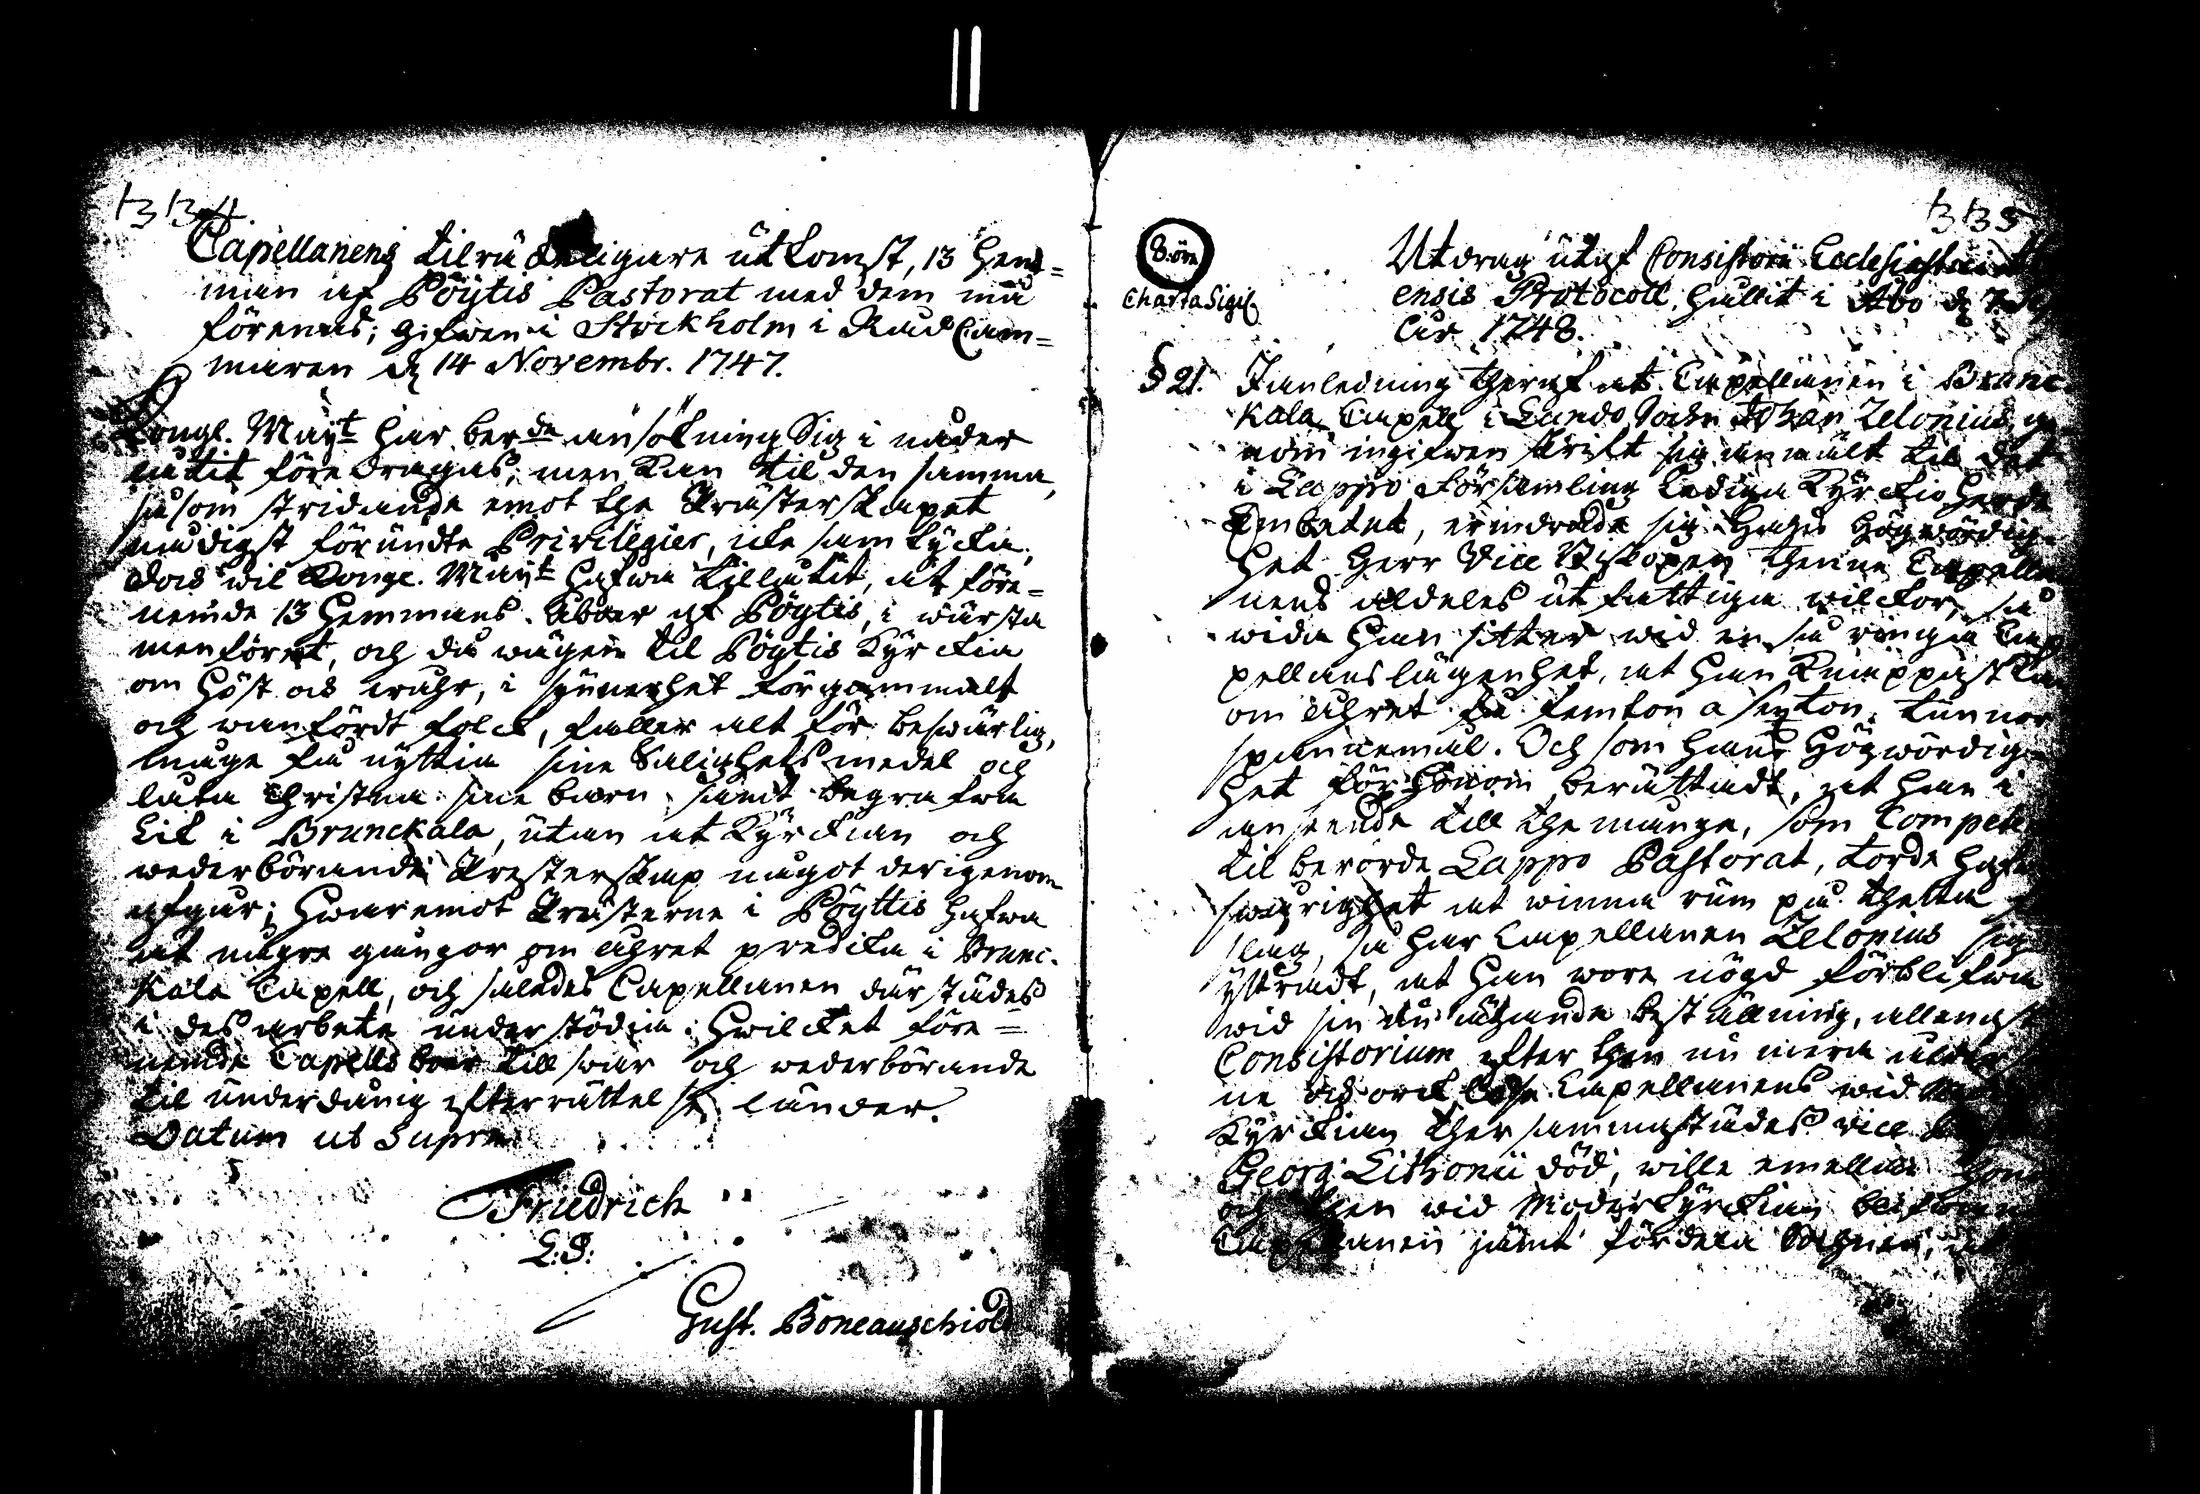 Capellanens tilräckeligare utkomst, 13 hem=
man af Pöÿtis Pastorat med dem må
förenas; gifwen i Stockholm i Råd Cam=
maren d. 14 Novembr. 1747.
Kongl. Maÿt har berde ansökning Sig i nåder
låtit föredragas, men kan til den samma,
såsom stridande emot the Prästerskapet
nådigst förundte Privilegier, icke samtÿcka,
dock wil Kongl. Maÿt hafwa tillåtit, at före=
nemde 13 Hemmans Åboer af Pöÿtis, i wärsta
menföret, och då wägen til Pöÿtis Kÿrckia
om höst och wåhr, i sÿnnerhet för gammalt
och wanfördt folck, faller alt för beswärlig,
måge få nÿttia sine Salighets medel och
låta Christna sine barn samt begrafwa
Lik i Brunckala, utan at Kÿrckian och
wederbörande Presterskap något derigenom
afgår; Hwaremot Prästerne i Pöÿttis hafwa
at någre gångor om åhret predika i Brunc-
kala Capell, och således Capellanen därstädes
i des arbete understödia. Hwilcket före=
nemde Capells boer till swar och wederbörande
til underdånig efterrättelse länder.
Datum ut Supra
Friedrich
L.S.
Gust. Boneauschiöld
1334.
1335
8. öre
Charta Sigil
Utdrag utaf Consistorii Ecclesiastici
ensis Protocoll, hållit i Åbo d. 7.
1748.
§ 21. I anledning theraf at Capellanen i Brunc-
kala Capell i Lundo Sochn Johan Zelonius, ge
nom ingifwen skrift sig anmält til det
i Lappo Församling lediga Kÿrckioherde
Embetet, erindrade sig Hans Högwördig-
het Herr Vice Biskopen thenne Capella
nens aldeles utfattiga wilckor, så
wida han sitter wid en så ringa Ca
pellans lägenhet, at han knappast kan
om åhret få femton a sexton tunnor
spannemål. Och som hans Högwördig-
het för honom berättadt, at han i
anseende till the många, som Compete
til berörde Lappo Pastorat, torde hafwa
swårighet at winna rum på thetta
slag, så har Capellanen Zelonius sig
ÿttradt, at han wore nögd förblifwa
wid sin nu ägande beställning, allenast
Consistorium efter then nu mera
ne och Capellanens wid
Kÿrckian ther sammastädes
Georg Lithonii död, wille emellan honom
och then wid Moderkÿrckian blifwan
Capellanen jämt fördela Sochnen, at